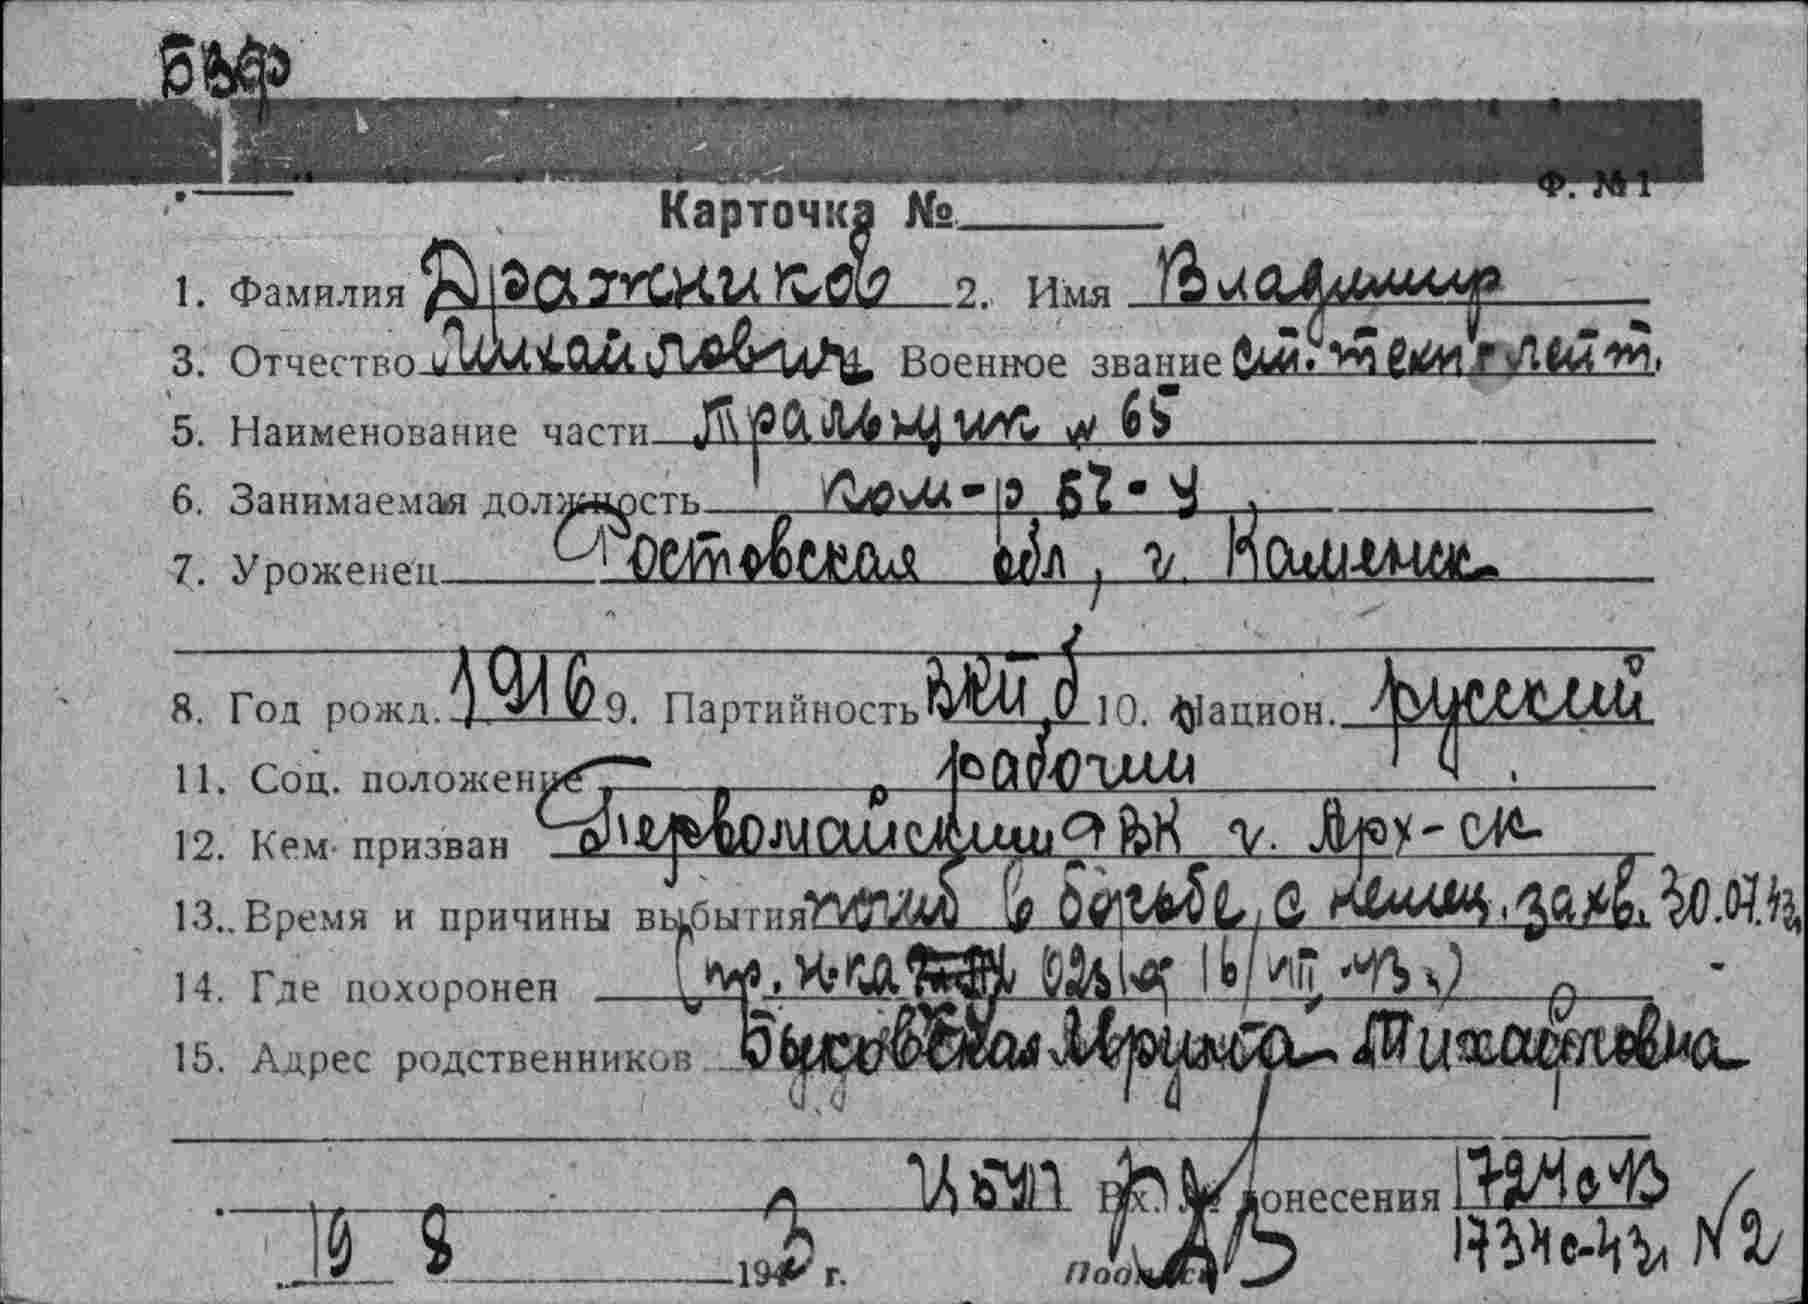 БВФ
Ф. №1
Карточка №
1. Фамилия Дражников 2. Имя Владимир
3. Отчество Михайлович Военное звание ст. техн-лейт.
5. Наименование части Тральщик № 65
6. Занимаемая должность ком-р БЧ-У
7. Уроженец Ростовская обл, г. Каменск
8. Год рожд. 1916 9. Партийность ВКПб 10. Национ. русский
11. Соц. положение рабочий
12. Кем призван Первомайский РВК г. Арх-ск
13. Время и причины выбытия погиб в борьбе с немец. захв. 30.07.43
14. Где похоронен (пр. н-ка 16/VIII-43)
15. Адрес родственников Михайловна
Вх. № донесения 1724с 43
1734с-43 № 2
19 8 1943 г. Подпись